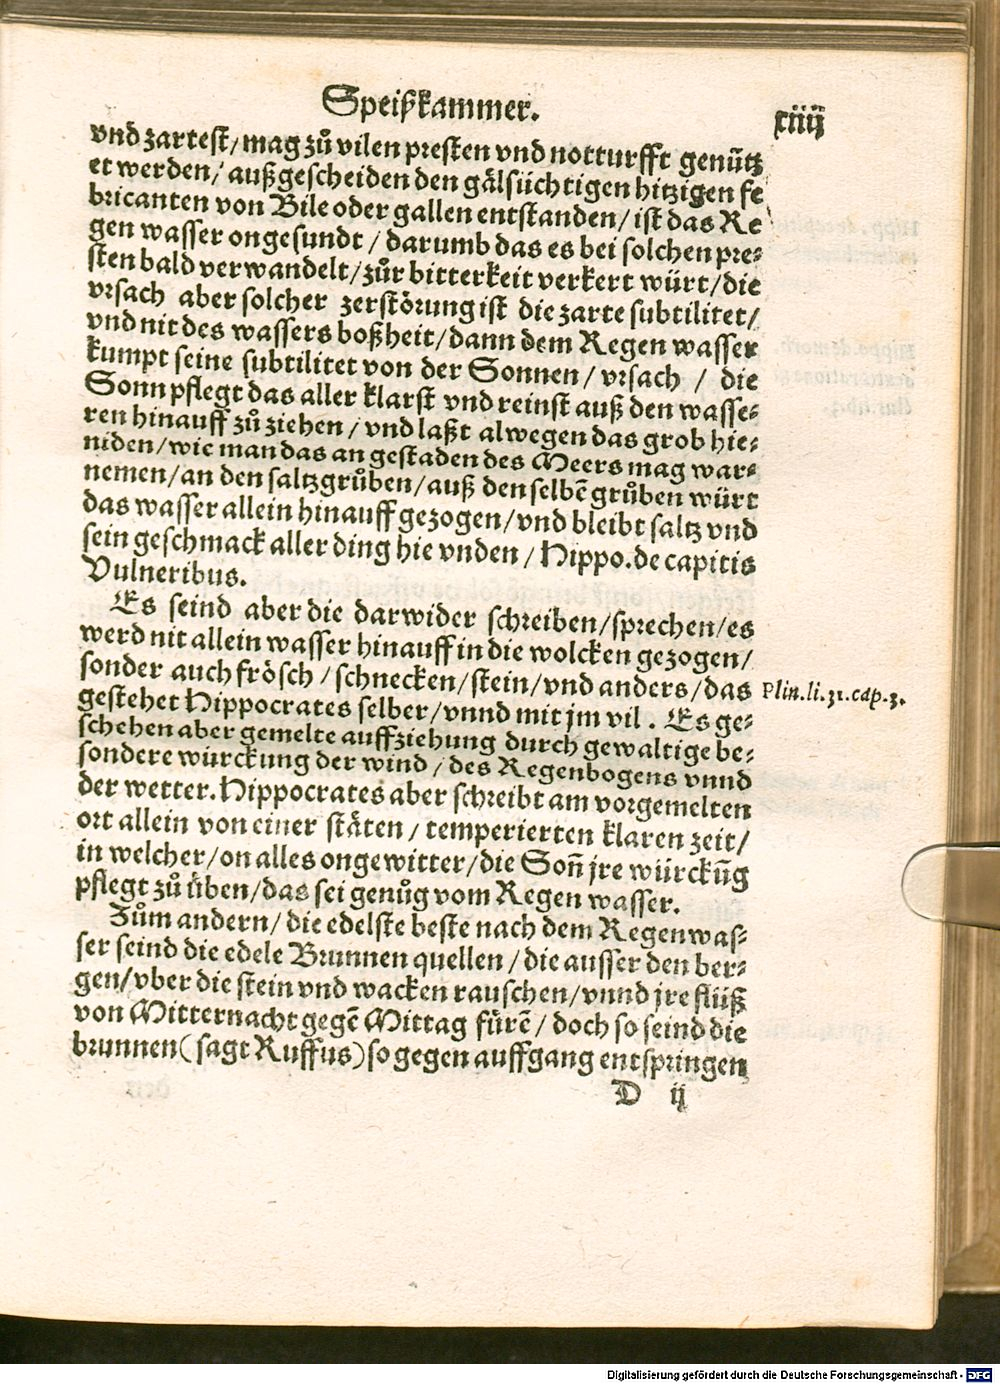 Speißkammer.
xiiij
vnd zartest/mag zů vilen presten vnd notturfft genũtz
et werden/ außgescheiden den gälsüchtigen hitzigen fe
bricanten von Bile oder gallen entstanden/ist das Re
gen wasser ongesundt/darumb das es bei solchen pre⸗
sten bald verwandelt/zůr bitterkeit verkert würt/die
vrsach aber solcher zerstörung ist die zarte subtilitet/
vnd nit des wassers boßheit/dann dem Regen wasser
kumpt seine subtilitet von der Sonnen/vrsach / die
Sonn pflegt das aller klarst vnd reinst auß den wasse⸗
ren hinauff zů ziehen/vnd laßt alwegen das grob hie⸗
niden/wie man das an gestaden des Meers mag war⸗
nemen/an den saltzgrůben/auß denselbẽ grůben würt
das wasser allein hinauff gezogen/vnd bleibt saltz vnd
sein geschmack aller ding hie vnden/Hippo.de capitis
Vulneribus.
Es seind aber die darwider schreiben/sprechen/es
werd nit allein wasser hinauff in die wolcken gezogen/
sonder auch frösch/schnecken/stein/vnd anders/das
Plin.li.31.cap.3.
gestehet Hippocrates selber/vnnd mit jm vil. Es ge⸗
schehen aber gemelte auffziehung durch gewaltige be⸗
sondere würckung der wind/des Regenbogens vnnd
der wetter. Hippocrates aber schreibt am vorgemelten
ort allein von einer stäten/temperierten klaren zeit/
in welcher/on alles ongewitter/die Soñ jre würckũg
pflegt zů üben/das sei genůg vom Regen wasser.
Zům andern/die edelste beste nach dem Regenwas⸗
ser seind die edele Brunnen quellen/die ausser den ber⸗
gen/vber die stein vnd wacken rauschen/vnnd jre flüß
von Mitternacht gegẽ Mittag fürẽ/doch so seind die
brunnen(sagt Ruffus)so gegen auffgang entspringen
D ij
Digitalisierung gefördert durch die Deutsche Forschungsgemeinschaft - DFG